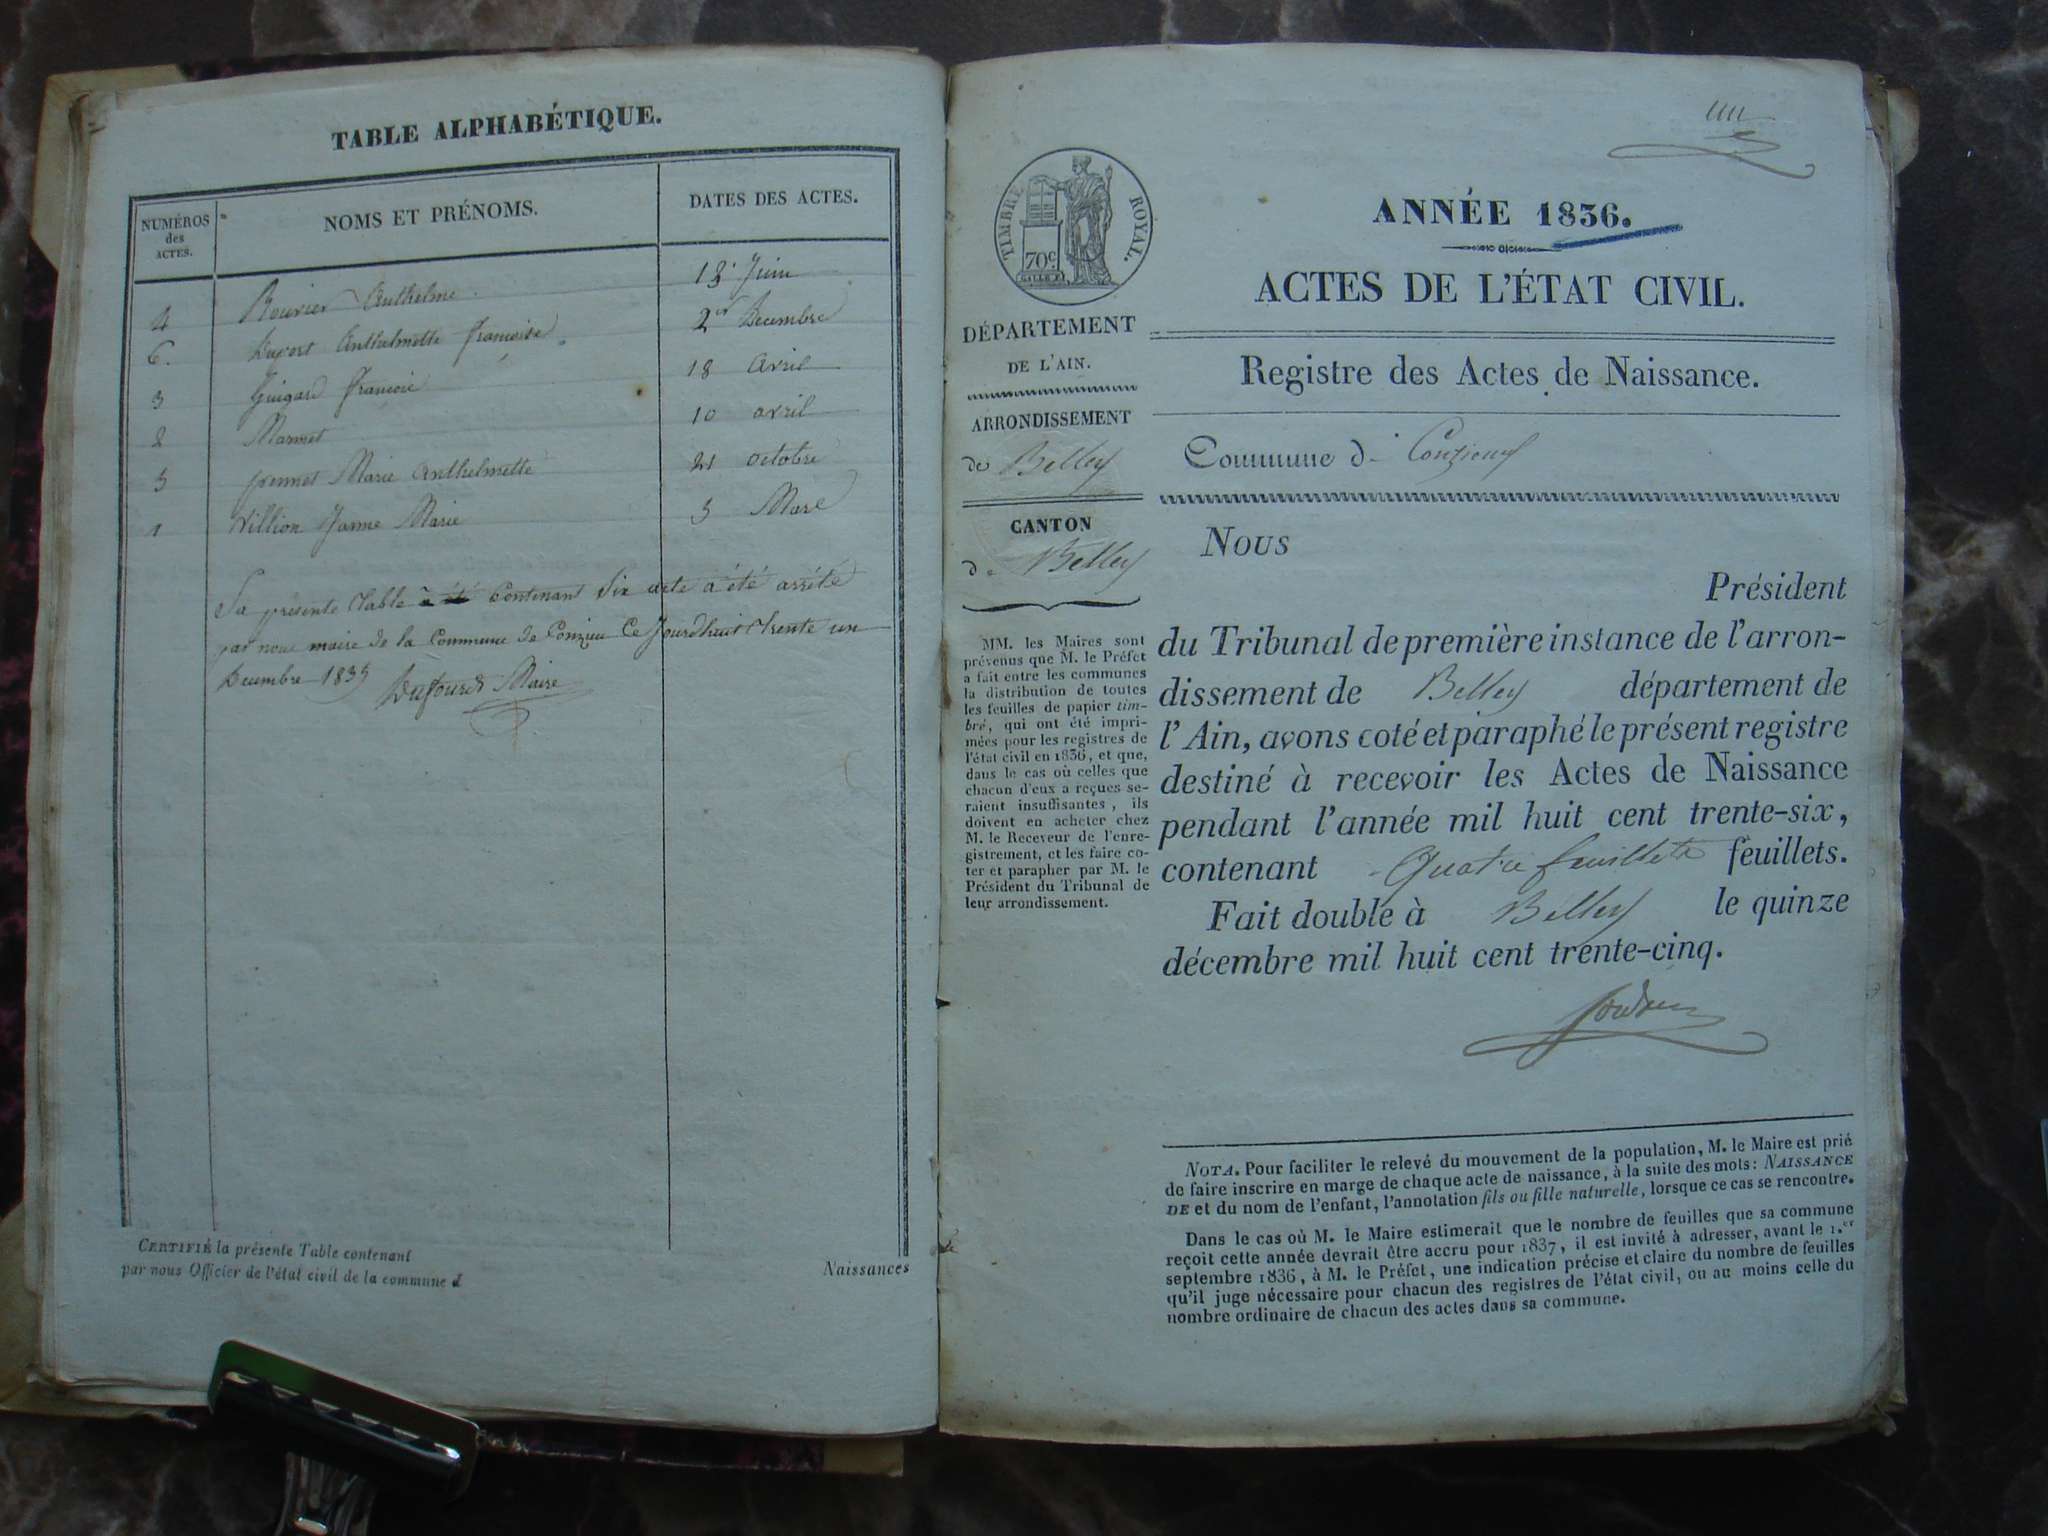 TABLE ALPHABÉTIQUE.
NUMÉROS
des
ACTES.
NOMS ET PRÉNOMS.
DATES DES ACTES.
4 Rouvier Anthelme. 13 Juin
6. Anthelmette françoise 2 Decembre
3 Guigard françois 18 avril
2 Marmet 10 avril
5 Marie Anthelmette 21 octobre
1 Janne Marie 5 Mars
présente table contenant Six acte a été arrêté
par nous maire de la Commune de Conzieu Ce Jourdhuit trente un
Decembre 1835 Maire
CERTIFIÉ la présente Table contenant
par nous Officier de l'état civil de la commune d
Naissances
TIMBRE ROYAL.
70c.
DÉPARTEMENT
DE L'AIN.
ARRONDISSEMENT
de Belley
CANTON
de Belley
MM. les Maires sont
prévenus que M. le Préfet
a fait entre les communes
la distribution de toutes
les feuilles de papier tim-
bré, qui ont été impri-
mées pour les registres de
l'état civil en 1836, et que,
dans le cas où celles que
chacun d'eux a reçues se-
raient insuffisantes, ils
doivent en acheter chez
M. le Receveur de l'enre-
gistrement, et les faire co-
ter et parapher par M. le
Président du Tribunal de
leur arrondissement.
ANNÉE 1836.
ACTES DE L'ÉTAT CIVIL.
Registre des Actes de Naissance.
Commune de Conzieu
NOUS
Président
du Tribunal de première instance de l'arron-
dissement de Belley département de
l'Ain, avons coté et paraphé le présent registre
destiné à recevoir les Actes de Naissance
pendant l'année mil huit cent trente-six,
contenant Quatre feuillets feuillets.
Fait double à Belley le quinze
décembre mil huit cent trente-cinq.
NOTA. Pour faciliter le relevé du mouvement de la population, M. le Maire est prié
de faire inscrire en marge de chaque acte de naissance, à la suite des mots: NAISSANCE
DE et du nom de l'enfant, l'annotation fils ou fille naturelle, lorsque ce cas se rencontre.
Dans le cas où M. le Maire estimerait que le nombre de feuilles que sa commune
reçoit cette année devrait être accru pour 1837, il est invité à adresser, avant le 1.er
septembre 1836, à M. le Préfet, une indication précise et claire du nombre de feuilles
qu'il juge nécessaire pour chacun des registres de l'état civil, ou au moins celle du
nombre ordinaire de chacun des actes dans sa commune.